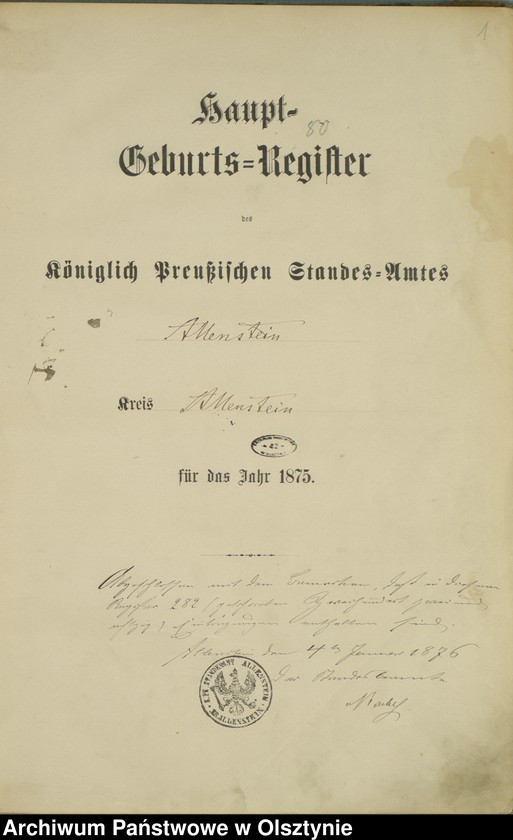 1
Haupt-
80
Geburts=Register
des
Königlich Preußischen Standes=Amtes
Allenstein
Kreis Allenstein
für das Jahr 1875.
Abgeschlossen mit dem Bemerken, daß in diesem
Register 282 (geschrieben Zweihundert zwei und
achtzig) Eintragungen enthalten sind.
Allenstein den 4ten Januar 1876
Der Standesbeamte
K. PR. STANDESAMT ALLENSTEIN
KR. ALLENSTEIN
Archiwum Państwowe w Olsztynie